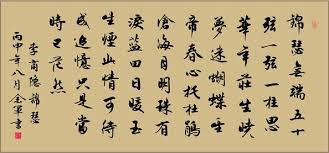 錦瑟無端五十
弦一弦一柱思
華年莊生曉
夢迷蝴蝶望
帝春心托杜鵑
滄海月明珠有
淚藍田日暖玉
生煙此情可待
成追憶只是當
時已然
李商隱錦瑟
丙申年八月金軍書